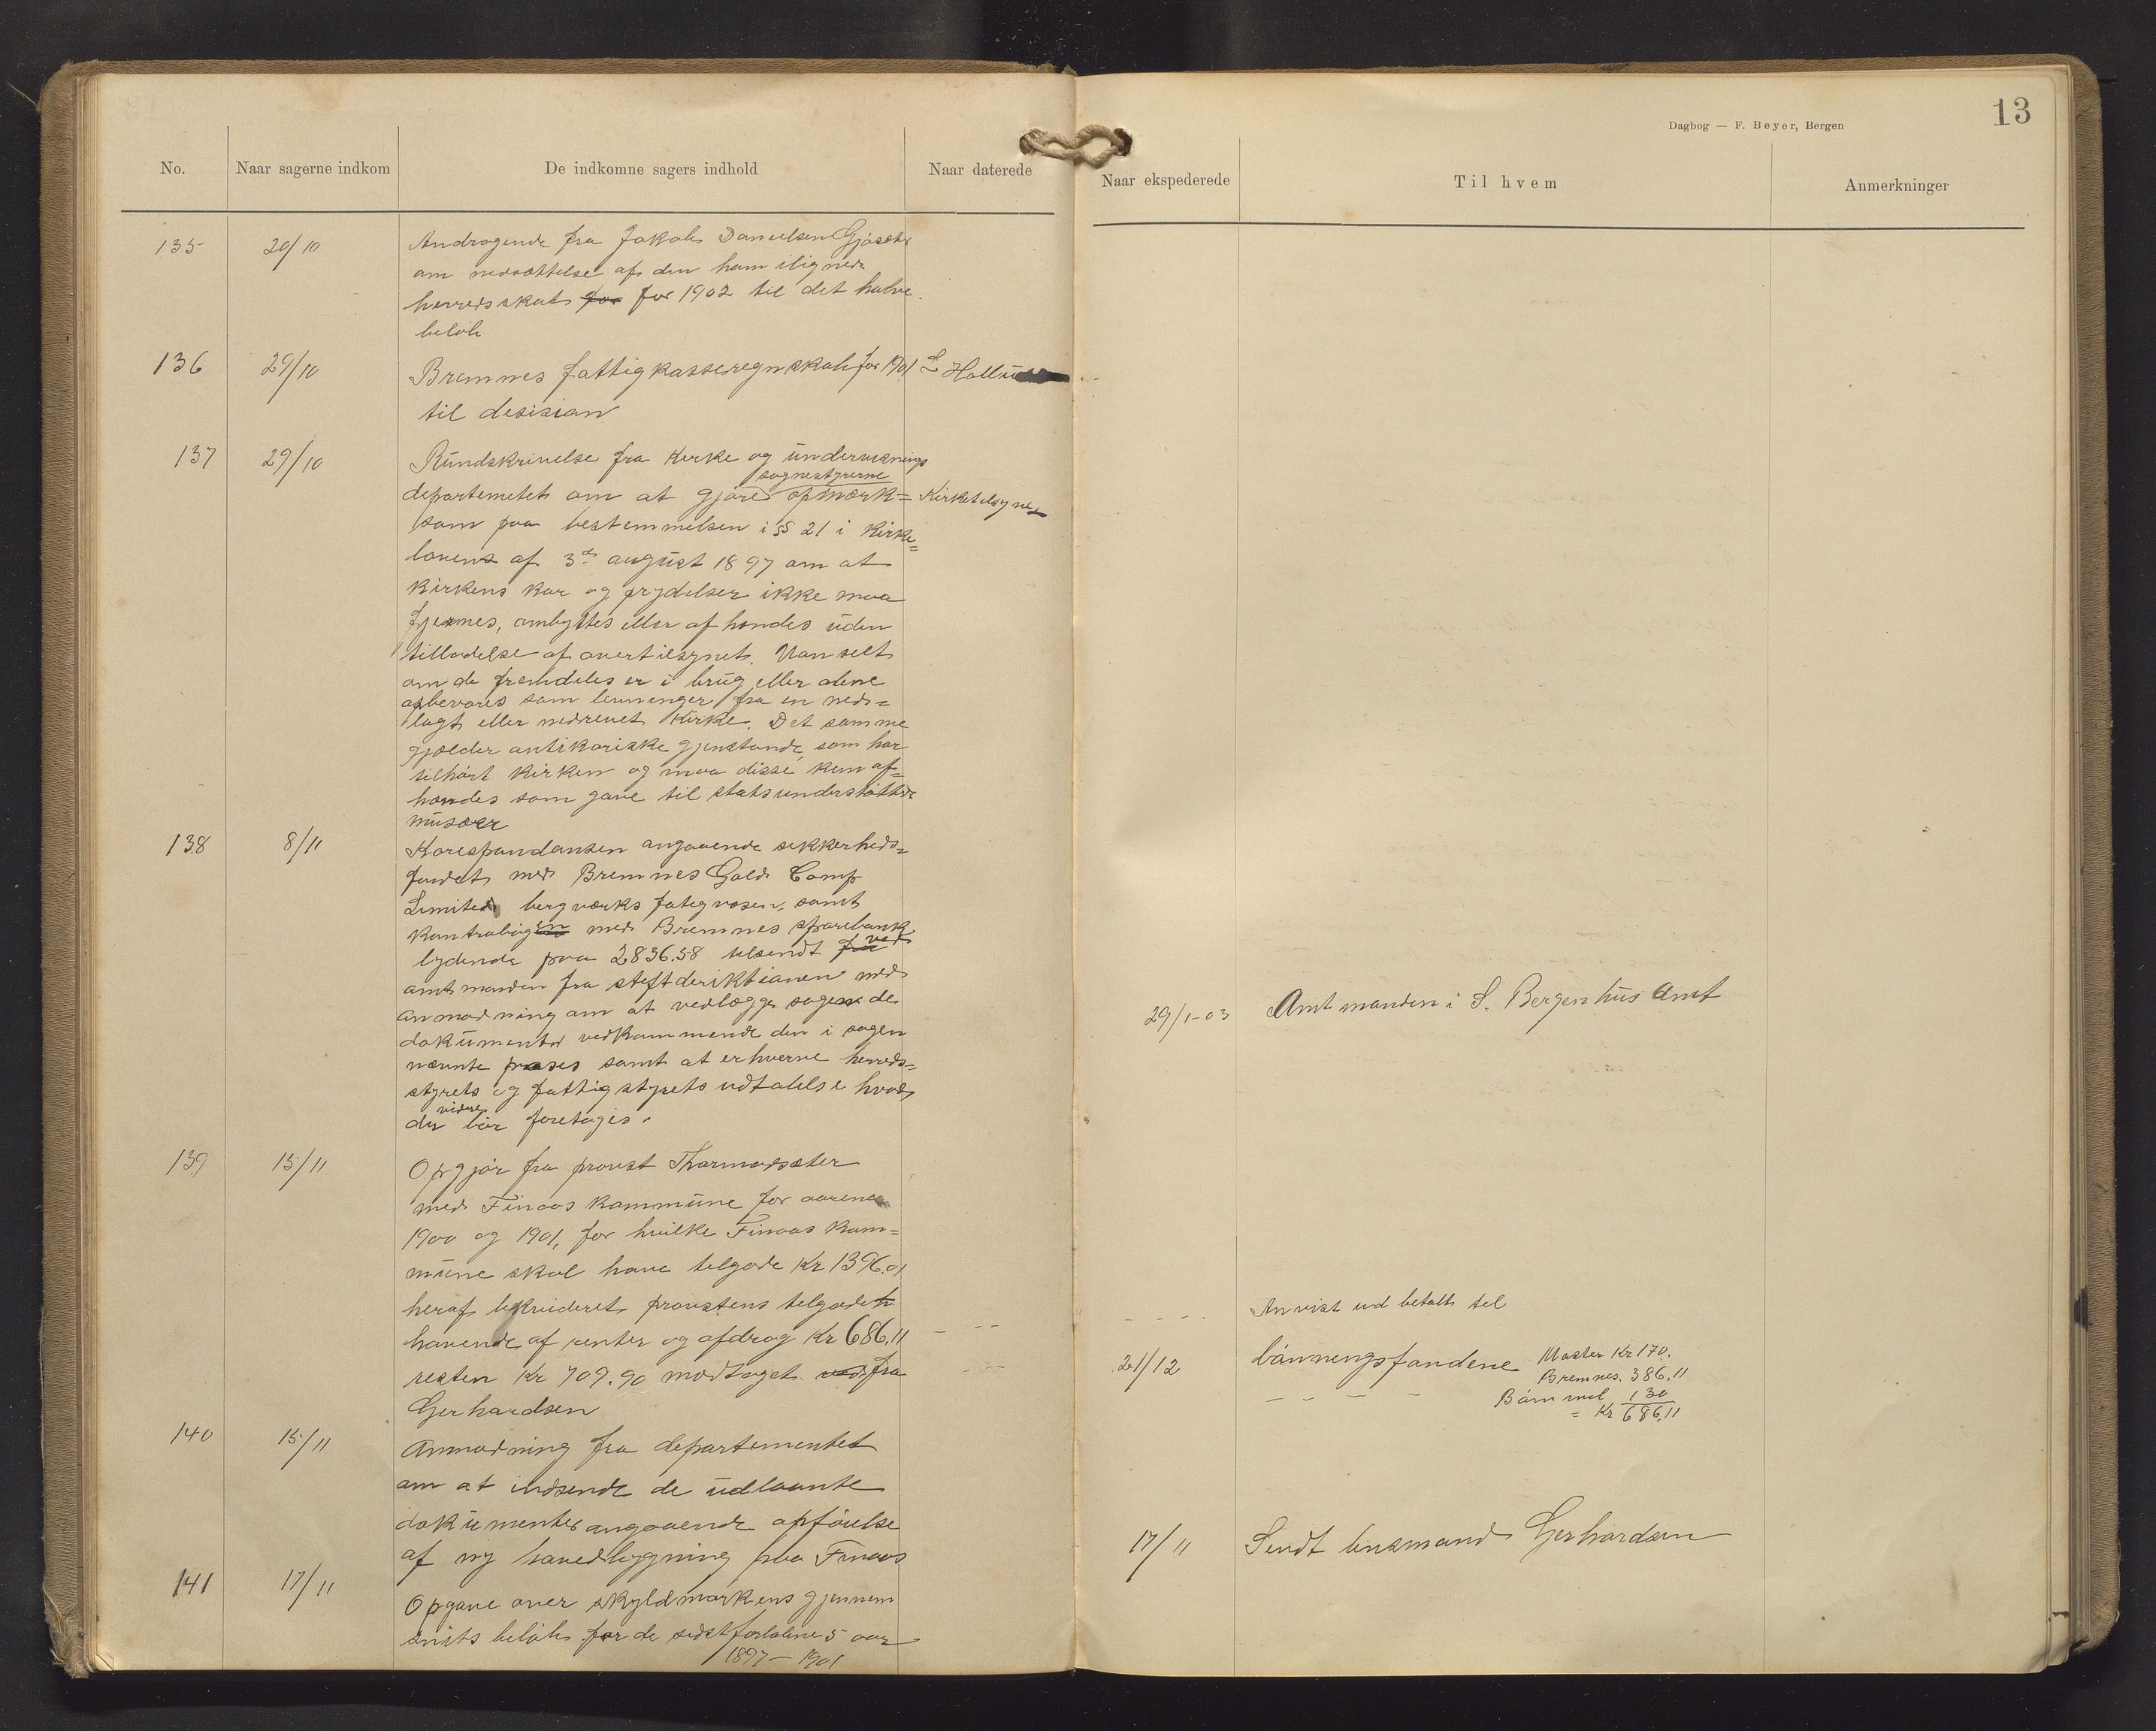 13
Dagbog — F. Beyer, Bergen
No.
Naar sagerne indkom
De indkomne sagers indhold
Naar daterede
Naar ekspederede
Til hvem
Anmerkninger
135 20/10 Andragende fra Jakob Danielsen
om nedsættelse af den ham ilignede
herredsskat for for 1902 til det halve
beløb
136 29/10 Bremnes fattigkasseregnskab for 1901
til desisian
137 29/10 Rundskrivelse fra Kirke og undervisnings
sognestyrerne
departemetet om at gjøre opmærk= Kirketilsynet
som paa bestemmelsen i § 21 i Kirke=
lovens af 3die august 1897 om at
Kirkens Kar og prydelser ikke maa
fjernes, ombyttes eller afhendes uden
tilladelse af overtilsynet. Uanseet
om de fremdeles er i brug eller alene
opbevares som levninger fra en ned=
lagt eller nedrevet Kirke. Det samme
gjælder antikvariske gjenstande, som har
tilhørt Kirken og maa disse kun af=
hændes som gave til statsunderstøttede
musæer
138 8/11 Korespondansen angaaende sikkerheds=
fondet med Bremnes Gold Comp
Limited bergværks fategvæsen, samt
Kontrabogen med Bremnes sparebank
lydende paa 2836.58 tilsendt fra ved
amtmanden fra stiftderiktionen med
anmodning om at vedlægge sagen de
dokumenter vedkommende den i sagen
nævnte proses samt at erhverve herreds=
styrets og fattigstyrets udtalelse hvad
videre
der bør foretages.
29/1-03 Amtmanden i S. Bergenhus Amt
139 15/11 Opgjør fra proust Thormodsæter
med Finaas kommune for aarene
1900 og 1901, for hvilke Finaas Kom=
mune skal have tilgode Kr 1396.01
heraf likvideret proustens tilgode
havende af renter og afdrag Kr 686.11
resten Kr 709.90 modtaget ved fra
Gerhardsen
Anvist ud betalt til
21/12 lånningsfondene Moster Kr 170.
Bremnes. 386.11
Bømmel 130
= Kr 686.11
140 15/11 Anmodning fra departementet
om at indsende de udlaante
dokumenter angaaende opførelse
af ny hovedbygning paa Finaas
17/11 Sendt lensmand Gerhardsen
141 17/11 Opgave over skyldmarkens gjennem
snits beløb for de sidst forløbne 5 aar
1897 — 1901